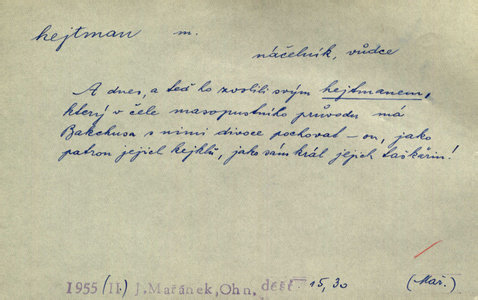 hejtman m.
náčelník, vůdce
A dnes, a teď ho zvolili svým hejtmanem,
který v čele masopustního průvodu má
Bakchusa s nimi divoce pochovat – on, jako
patron jejich kejklů, jako sám král jejich taškařin!
1955 (II.) J. Mařánek, Ohn. déšť 15, 30 (Mař.)